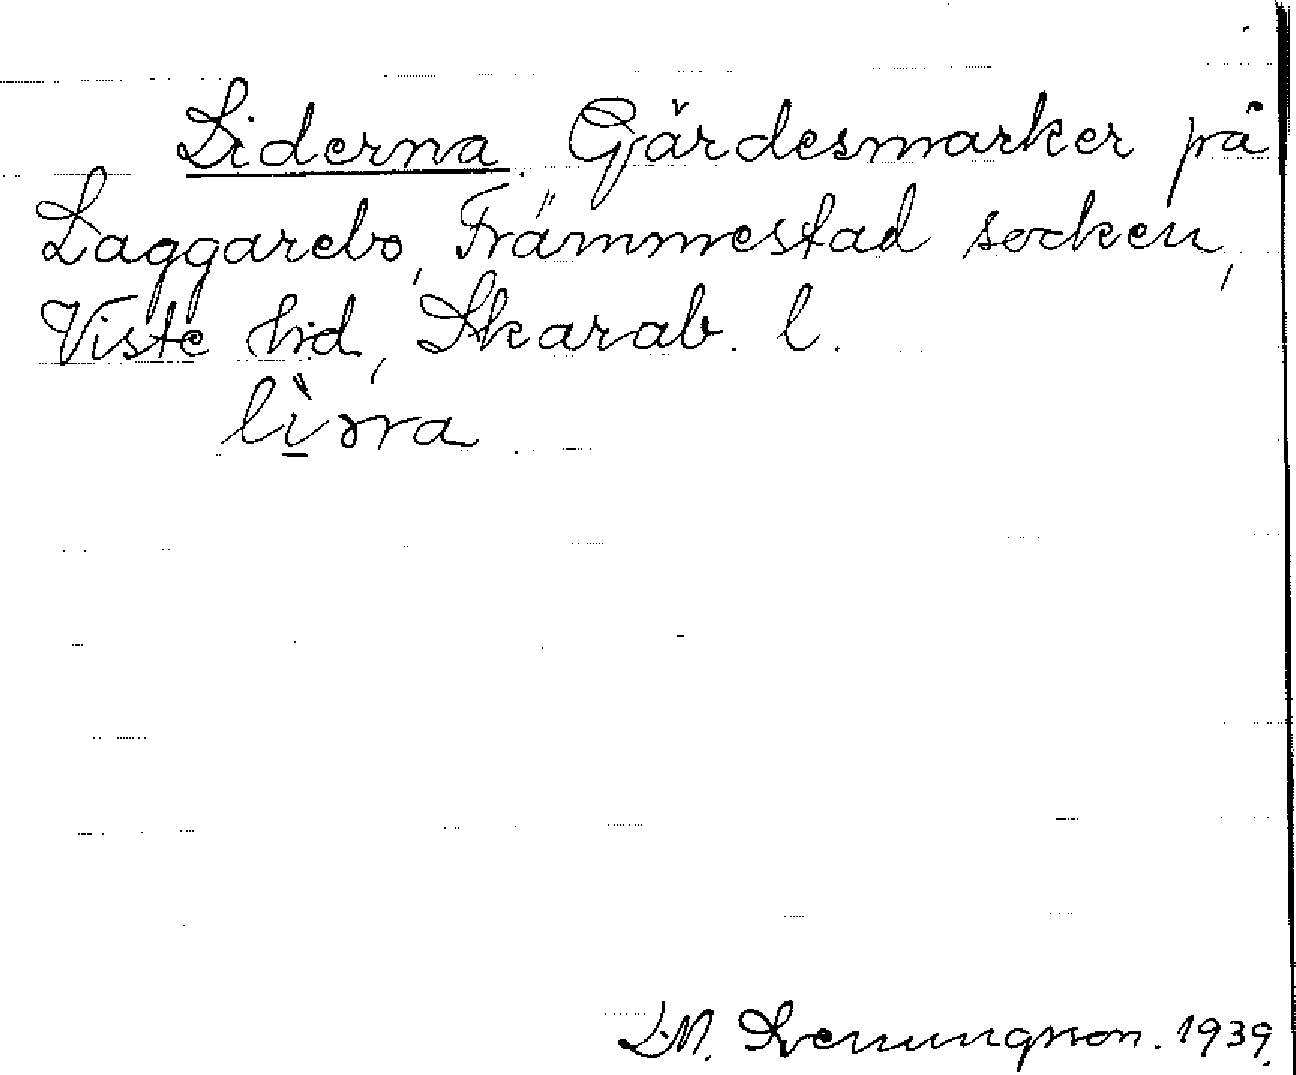 Liderna. Gärdesmarker på
Laggarebo, Främmestad socken,
Viste hd, Skarab. l.
lìrra
L.M. Svenungsson. 1939.